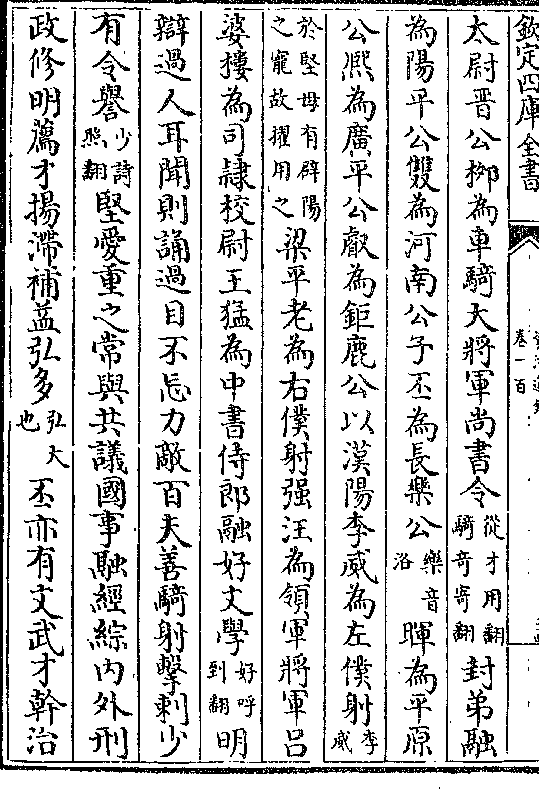 欽定四庫全書
卷一百
太尉晉公柳為車騎大將軍尚書令從才用翻騎奇寄翻封弟融
為陽平公雙為河南公子丕為長樂公樂音洛暉為平原
公熙為廣平公叡為鉅鹿公以漢陽李威為左僕射李威
於堅母有辟陽之寵故擢用之梁平老為右僕射强汪為領軍將軍呂
婆樓為司隷校尉王猛為中書侍郎融好文學好呼到翻明
辯過人耳聞則誦過目不忘力敵百夫善騎射擊刺少
有令譽少詩照翻堅愛重之常與共議國事融經綜内外刑
政修明薦才揚滯補益弘多弘大也丕亦有文武才幹治